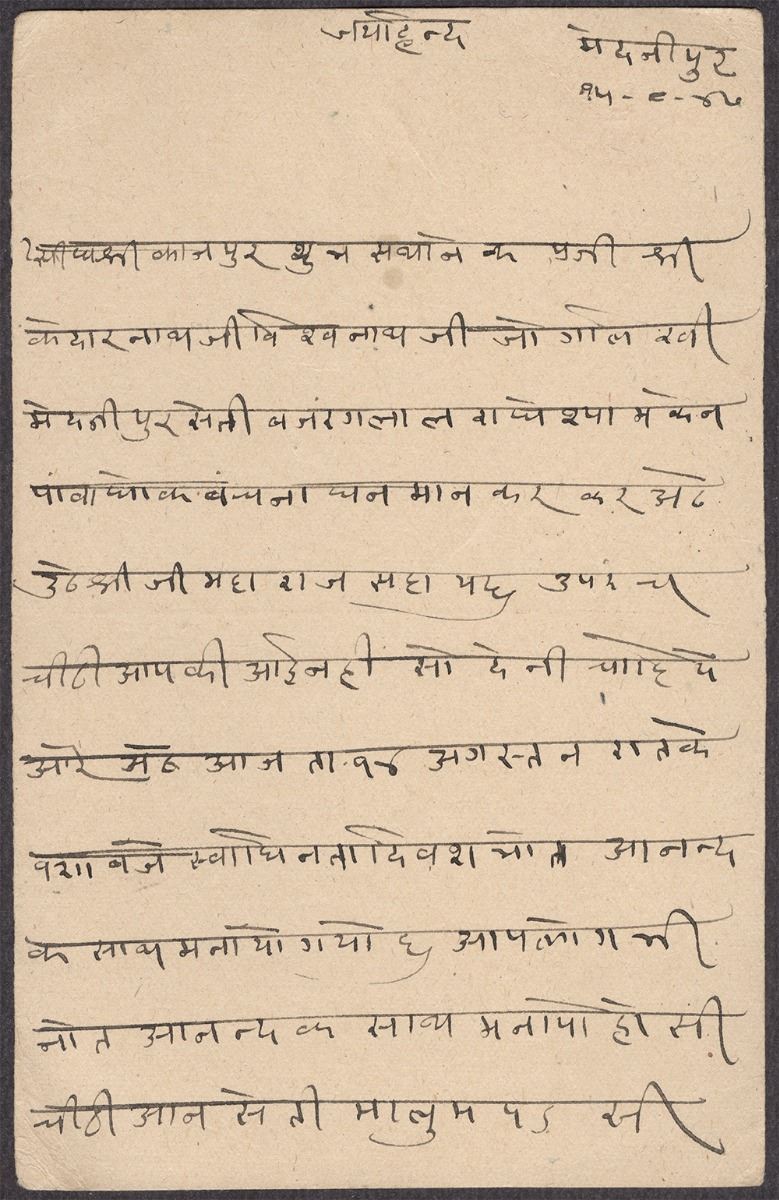 जयहिन्द
मेदनीपुर
१५-८-४७
सीधश्री कानपुर शुभ सथाने क पुजी श्री
केदारनाथजी विश्वनाथ जी जोग लिखी
मेदनीपुर सेती बजरंगलाल राधेश्याम केन
पांवाधोक बंचना घन मान कर कर अठे
उठे श्री जी महाराज सहाय छ उपरंच
चीठी आपकी आई नही सो देनी चाहिये
और अठ आज ता. १४ अगस्त न रात के
१२॥ बजे स्वाधिनता दिवश भोत आनन्द
के साथ मनायो गयो छ आपलोग भी
भोत आनन्द क साथ मनायो होसी
चीठी आन सेती मालुम पड सी